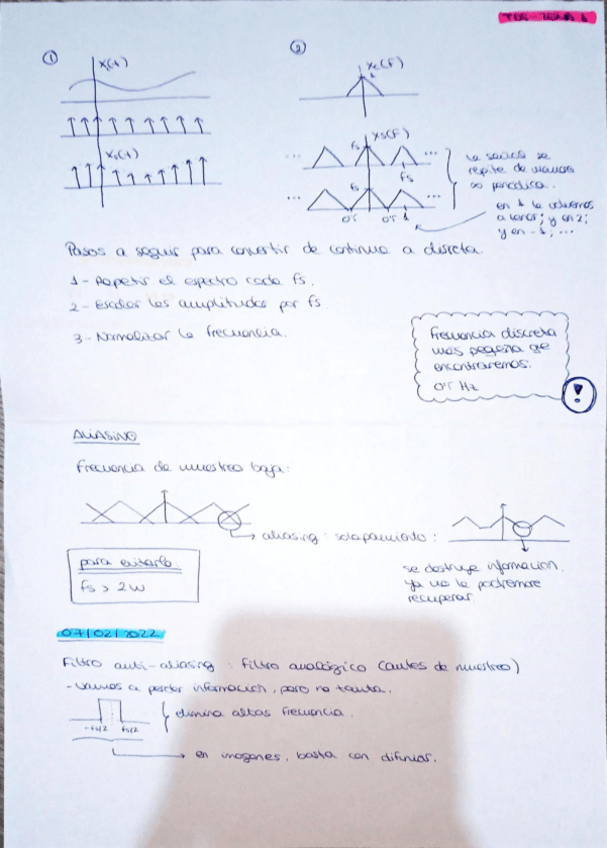 TDS - TEMA 1
①
x(t)
xs(t)
②
Xc(F)
1
fs
Xs(F)
...
...
fs
fs
...
...
0'5
0'5
1
la señal se
repite de manera
∞ periódica.
en 1 la volvemos
a tener; y en 2;
y en -1; ...
Pasos a seguir para convertir de continua a discreta.
1 - Repetir el espectro cada fs.
2 - Escalar las amplitudes por fs
3 - Normalizar la frecuencia.
frecuencia discreta
mas pequeña que
encontraremos:
0'5 Hz
!
ALIASING
Frecuencia de muestreo baja:
aliasing: solapamiento:
para evitarlo:
fs > 2W
se destruye informacion.
ya no la podremos
recuperar.
07/02/2022
Filtro anti-aliasing: filtro analógico (antes de muestreo)
- vamos a perder informacion, pero no tanta.
-fs/2
fs/2
elimina altas frecuencia.
en imagenes, basta con difuminar.